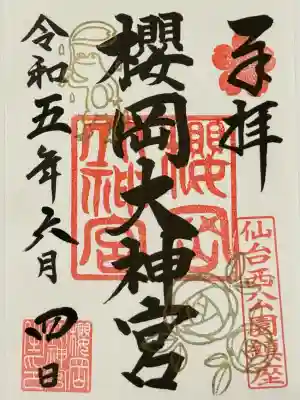 奉拝
櫻岡大神宮
令和五年六月四日
櫻岡
大神宮
仙台西公園鎮坐